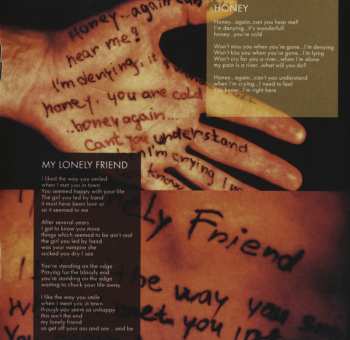 Honey..again can
hear me?
I'm denying..it
honey. you are cold
..honey again...
Cant you understand
I'm crying I
know
HONEY
Honey...again..can you hear me?
I'm denying...it's wonderfull
honey..you're cold
Won't miss you when you're gone...I'm denying
Won't kiss you when you're gone...I'm lying
Won't cry for you a river...when I'm alone
my pain is a river...what will you do?
Honey...again...can't you understand
when I'm crying...I need to feel
You know...I'm right here
MY LONELY FRIEND
I liked the way you smiled
when I met you in town
You seemed happy with your life
The girl you led by hand
it must have been love or
so it seemed to me
After several years
I got to know you more
things which seemed to be ain't real
the girl you led by hand
was your vampire she
sucked you dry I see
You're standing on the edge
Praying for the bloody end
you're standing on the edge
waiting to chuck your life away
I like the way you smile
when I meet you in town
though you seem so unhappy
this ain't the end
my lonely friend
so get off your ass and see ...and be
ly Friend
he way you
et you in